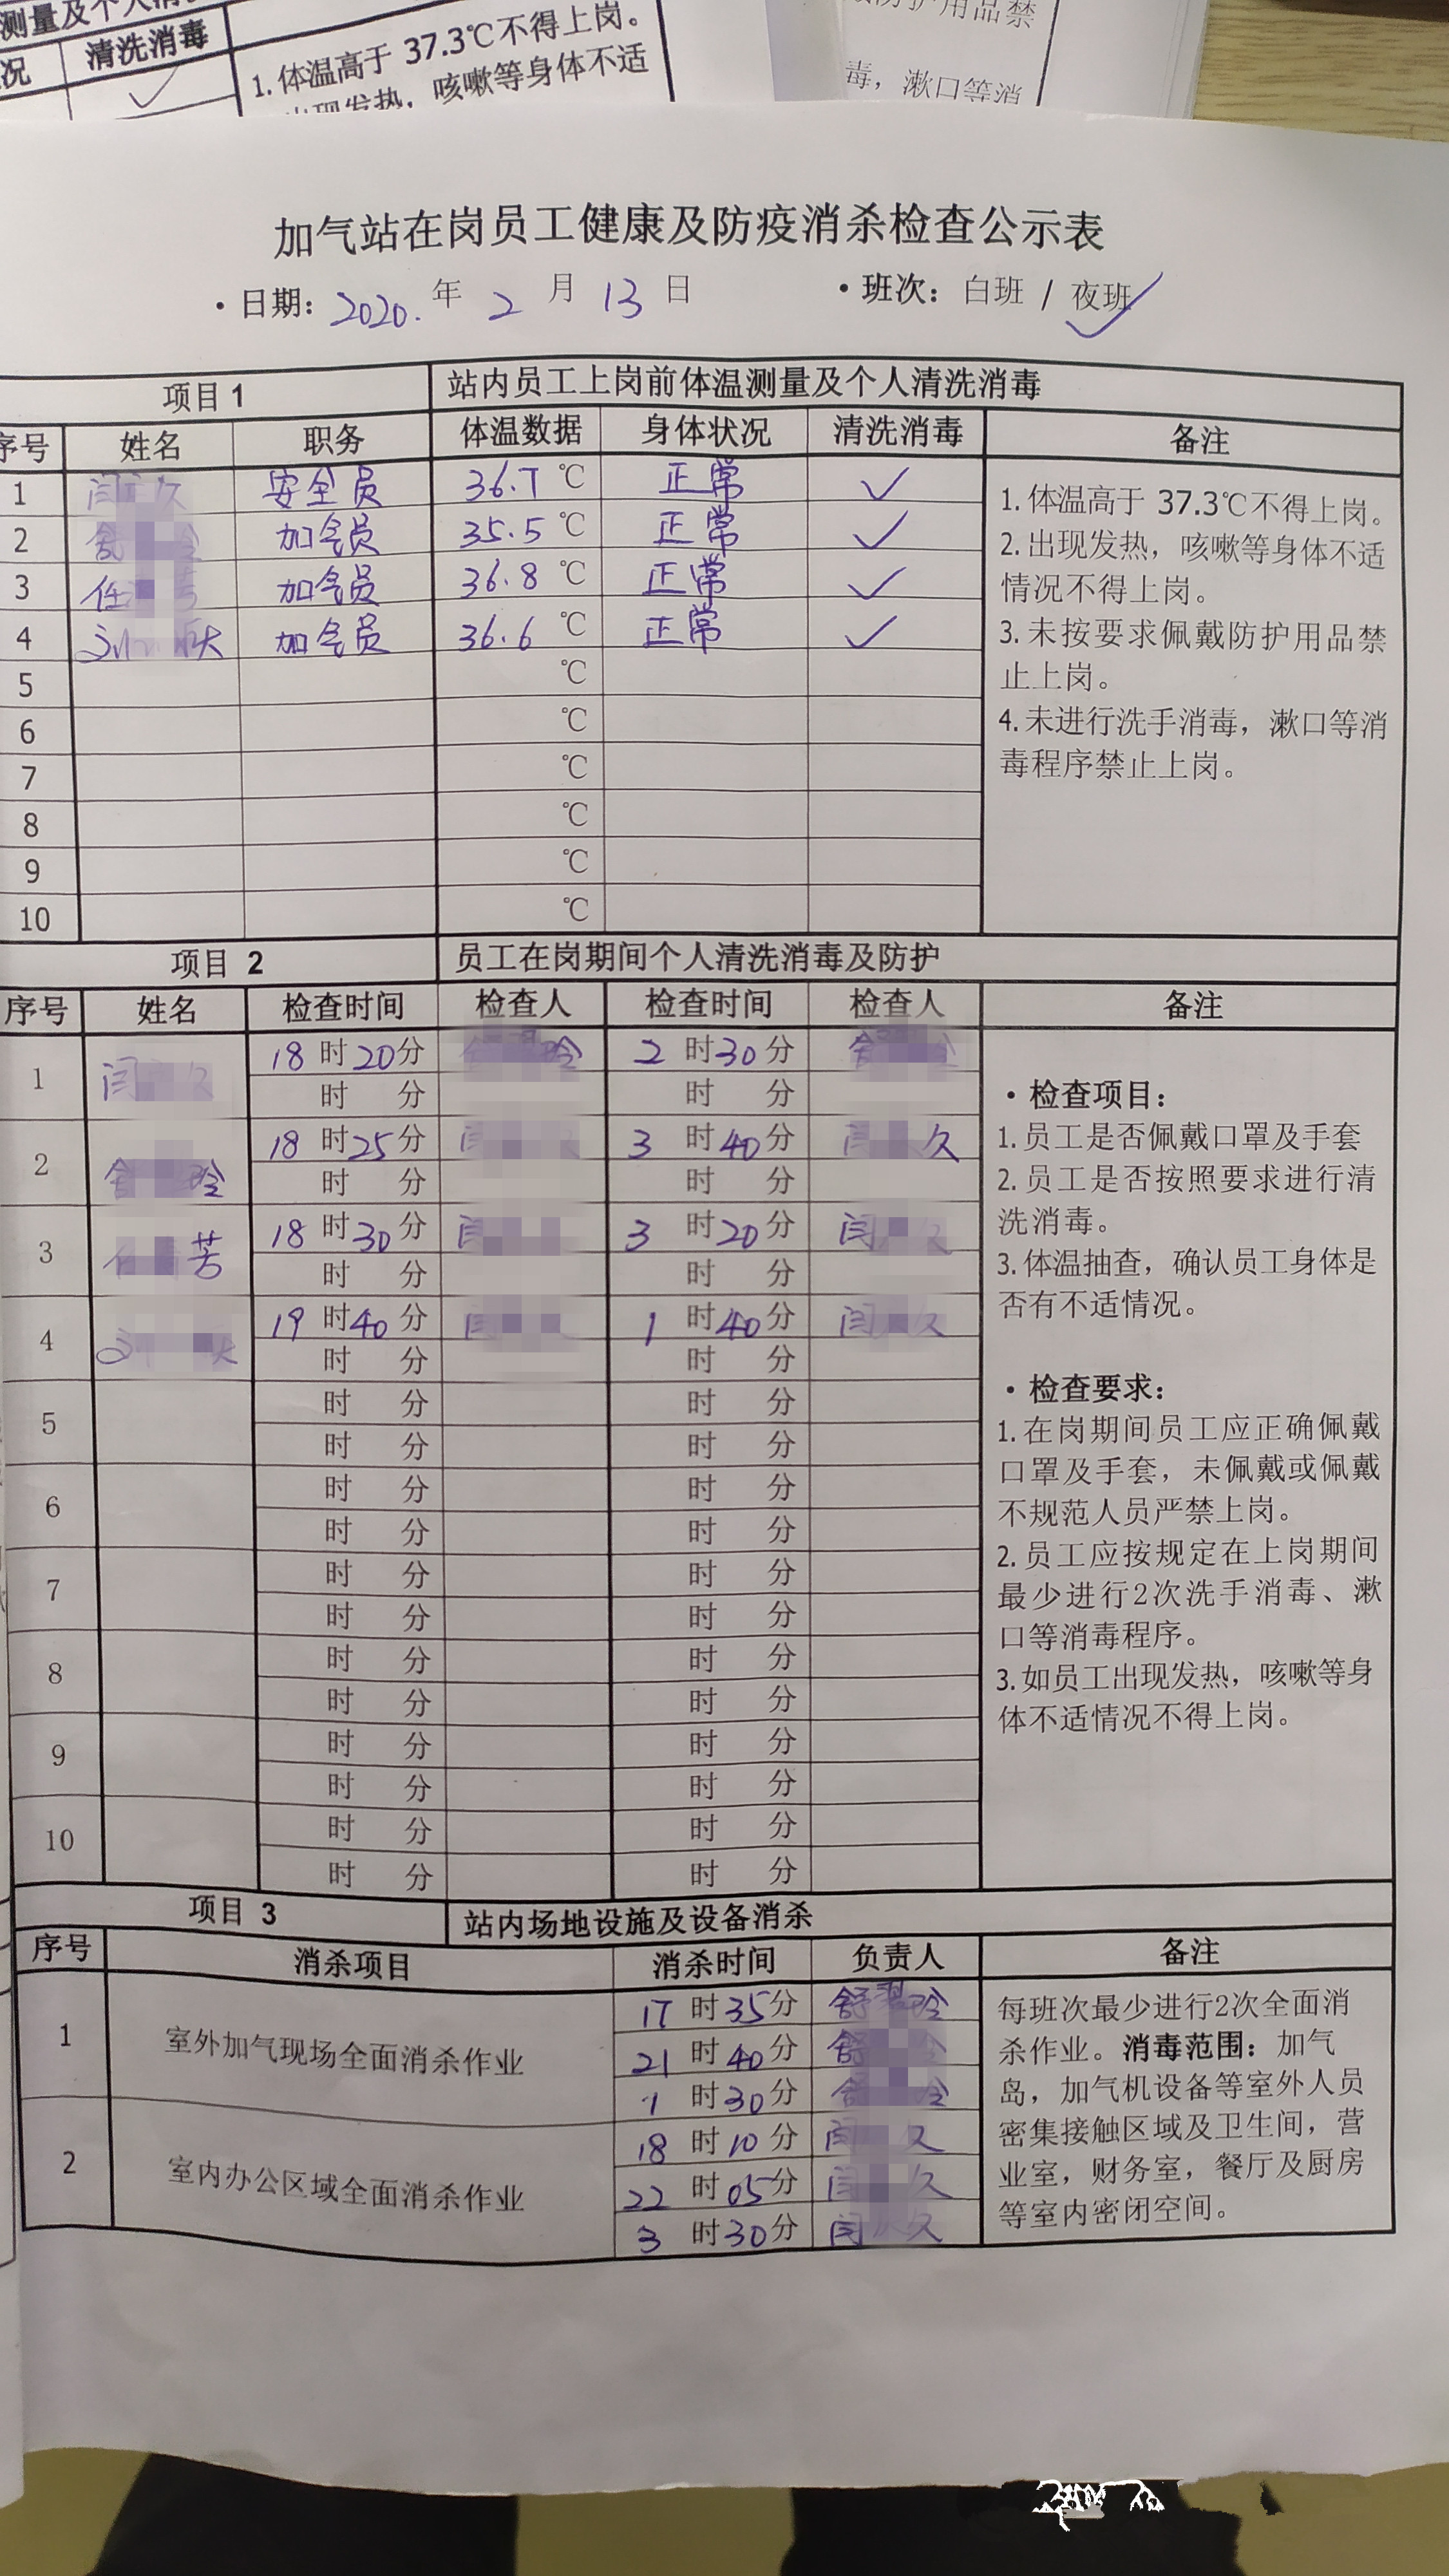 测量及个人清
况 清洗消毒
1. 体温高于 37.3℃不得上岗。
出现发热，咳嗽等身体不适
防护用品禁
毒，漱口等消
加气站在岗员工健康及防疫消杀检查公示表
·日期：2020. 年 2 月 13 日 ·班次：白班 / 夜班 ✓
项目 1 站内员工上岗前体温测量及个人清洗消毒
序号 姓名 职务 体温数据 身体状况 清洗消毒 备注
1 安全员 36.7 ℃ 正常 ✓
2 加气员 35.5 ℃ 正常 ✓
3 加气员 36.8 ℃ 正常 ✓
4 加气员 36.6 ℃ 正常 ✓
5 ℃
6 ℃
7 ℃
8 ℃
9 ℃
10 ℃
1. 体温高于 37.3℃不得上岗。
2. 出现发热，咳嗽等身体不适
情况不得上岗。
3. 未按要求佩戴防护用品禁
止上岗。
4. 未进行洗手消毒，漱口等消
毒程序禁止上岗。
项目 2 员工在岗期间个人清洗消毒及防护
序号 姓名 检查时间 检查人 检查时间 检查人 备注
1 18 时 20 分 2 时 30 分
时 分 时 分
2 18 时 25 分 3 时 40 分 久
时 分 时 分
3 芳 18 时 30 分 3 时 20 分
时 分 时 分
4 19 时 40 分 1 时 40 分
时 分 时 分
5 时 分 时 分
时 分 时 分
6 时 分 时 分
时 分 时 分
7 时 分 时 分
时 分 时 分
8 时 分 时 分
时 分 时 分
9 时 分 时 分
时 分 时 分
10 时 分 时 分
时 分 时 分
·检查项目：
1. 员工是否佩戴口罩及手套
2. 员工是否按照要求进行清
洗消毒。
3. 体温抽查，确认员工身体是
否有不适情况。
·检查要求：
1. 在岗期间员工应正确佩戴
口罩及手套，未佩戴或佩戴
不规范人员严禁上岗。
2. 员工应按规定在上岗期间
最少进行2次洗手消毒、漱
口等消毒程序。
3. 如员工出现发热，咳嗽等身
体不适情况不得上岗。
项目 3 站内场地设施及设备消杀
序号 消杀项目 消杀时间 负责人 备注
1 室外加气现场全面消杀作业 17 时 35 分
21 时 40 分
1 时 30 分
2 室内办公区域全面消杀作业 18 时 10 分
22 时 05 分
3 时 30 分
每班次最少进行2次全面消
杀作业。消毒范围：加气
岛，加气机设备等室外人员
密集接触区域及卫生间，营
业室，财务室，餐厅及厨房
等室内密闭空间。